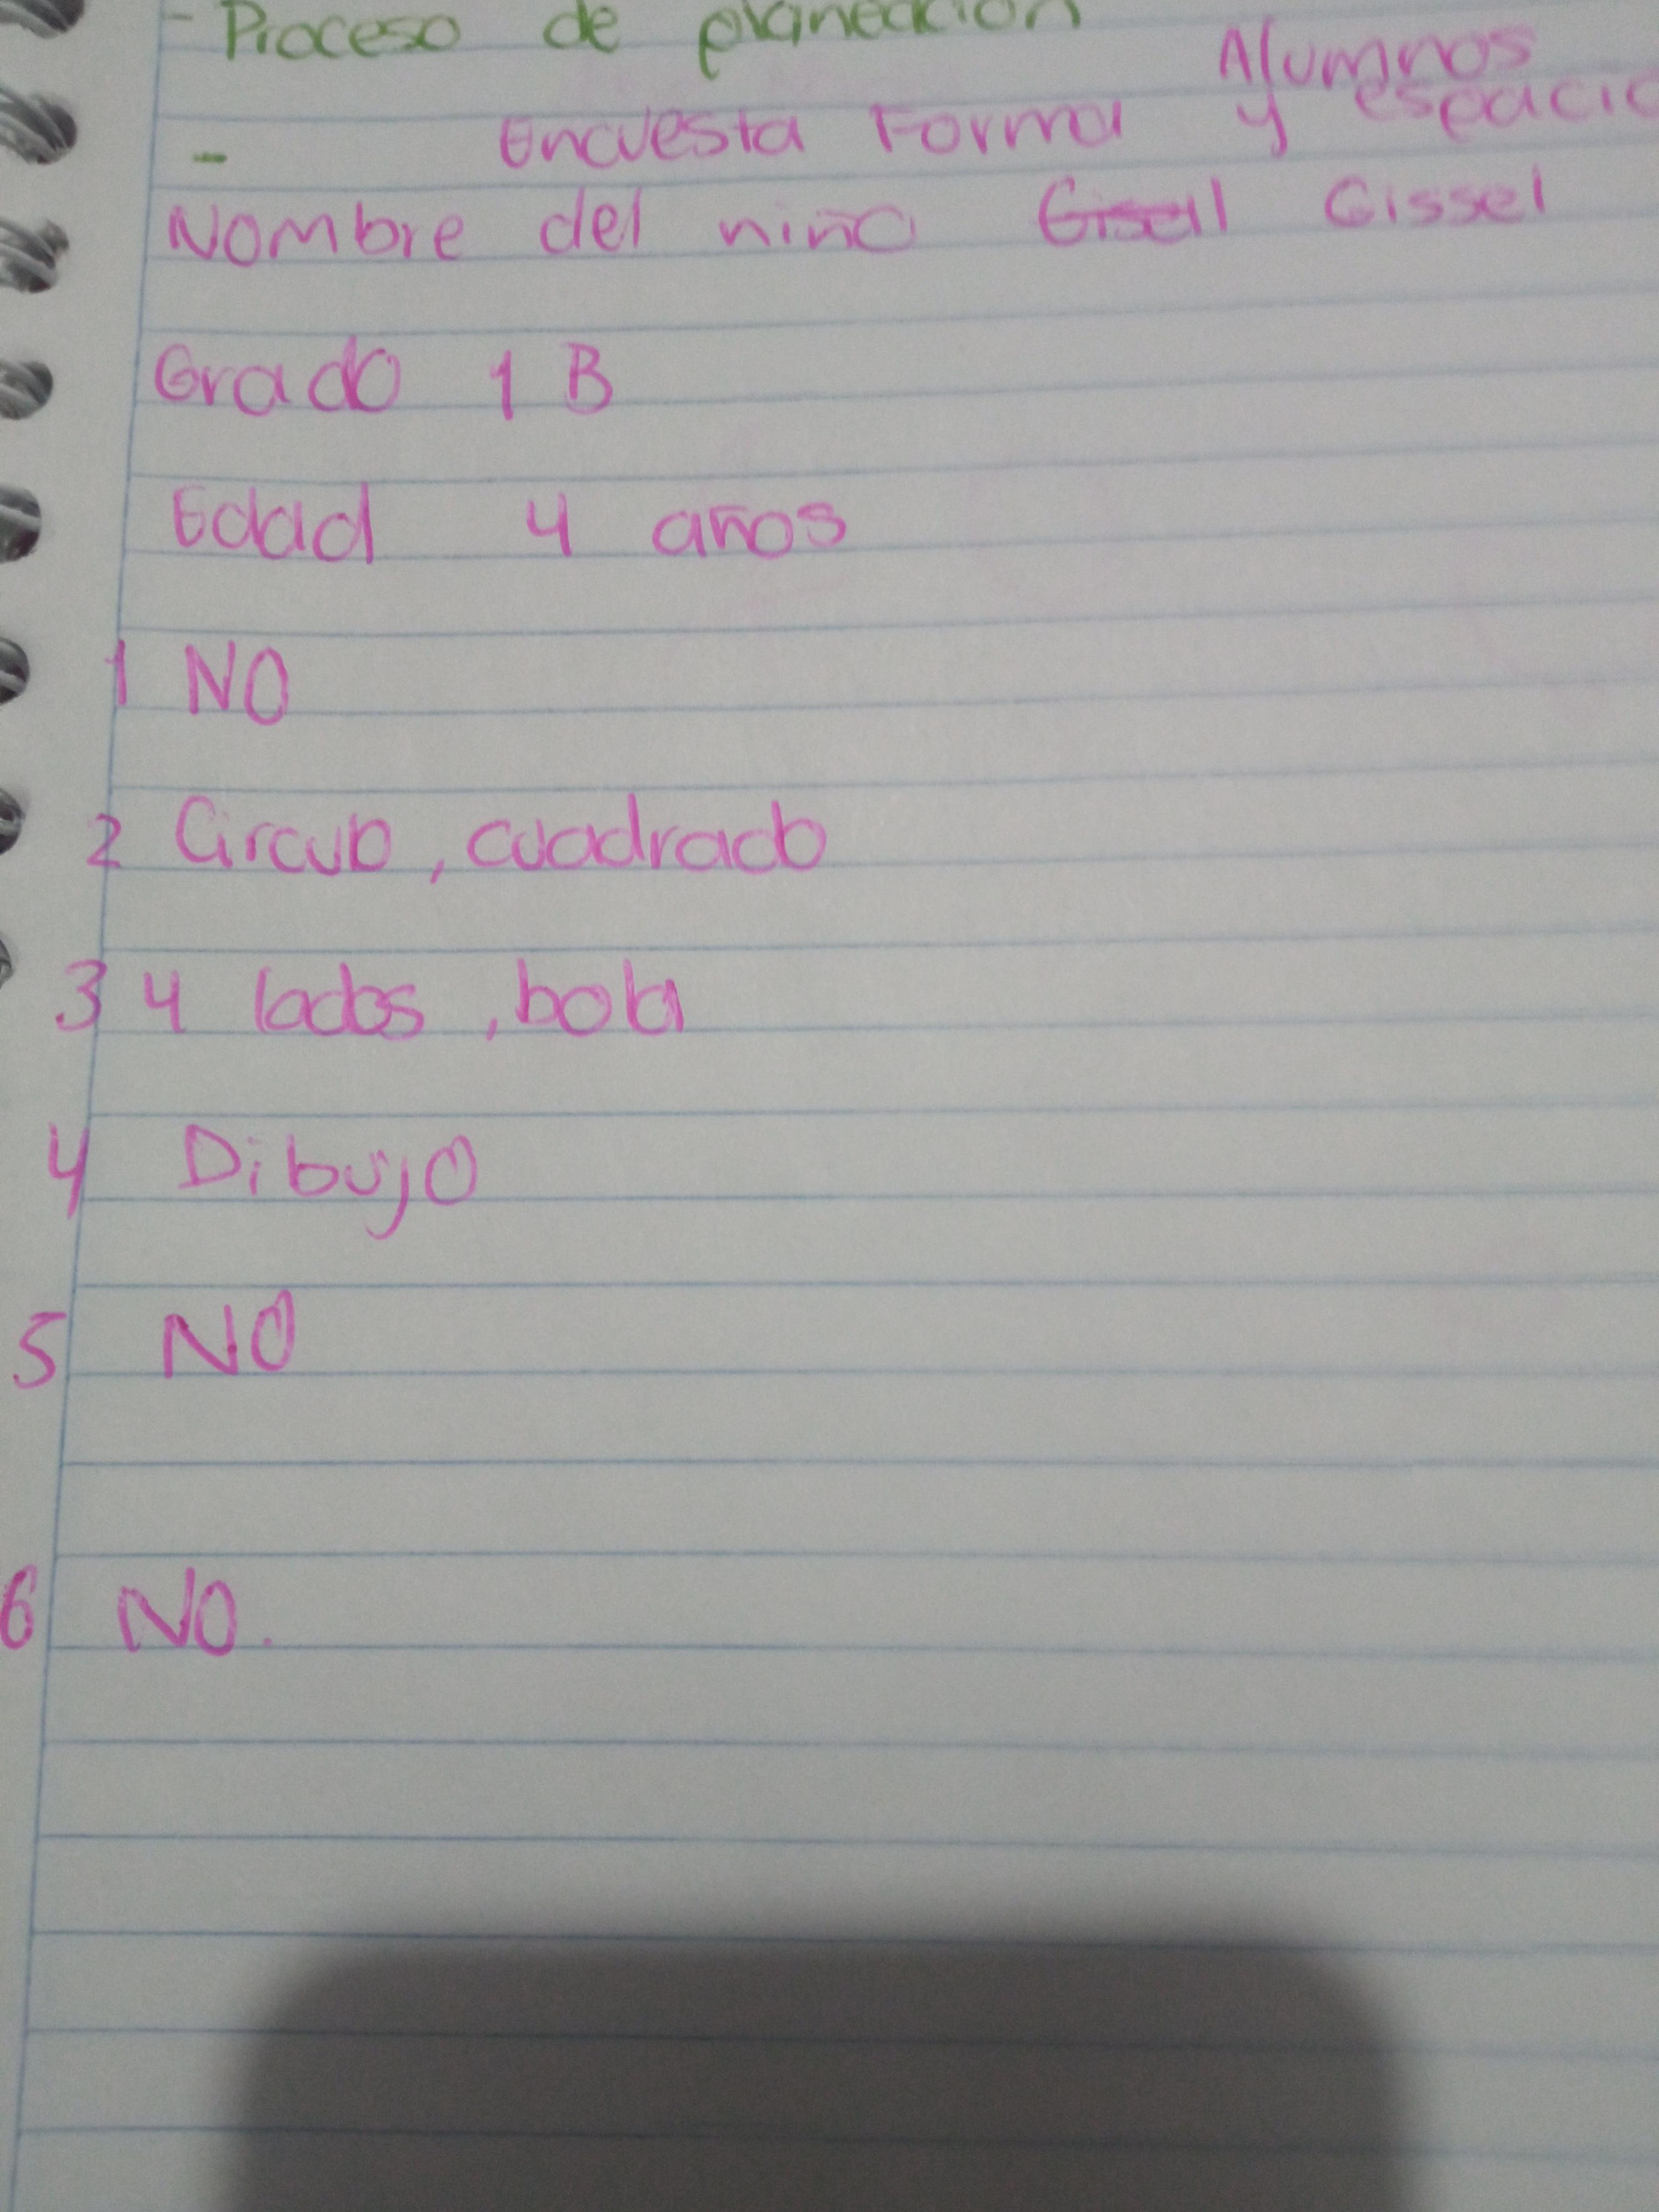 - Proceso de planeación
Alumnos
- Encuesta Forma y espacio
Nombre del niño Gisell Gissel
Grado 1 B
Edad 4 años
1 NO
2 Circulo, cuadrado
3 4 lados, bola
4 Dibujo
5 NO
6 NO.